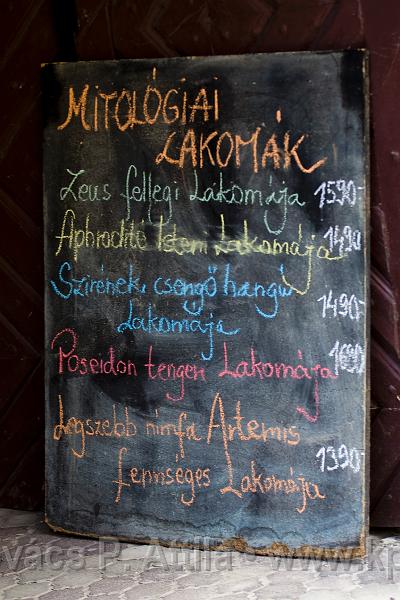 MITOLÓGIAI
LAKOMÁK
Zeus fellegi Lakomája 1590-
Aphrodité Isteni Lakomája 1490
Szirének csengő hangú 1490-
Lakomája
Poseidon tengeri Lakomája 1690-
Legszebb nimfa Artemis 1390-
fennséges Lakomája
vács P. Attila - www.kp